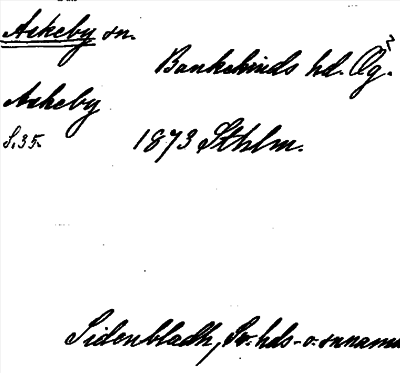 Askeby sn.
Bankekinds hd. Ög.
Askeby
S. 35. 1873 Sthlm.
Sidenbladh, Sv. hds- o. snnamn